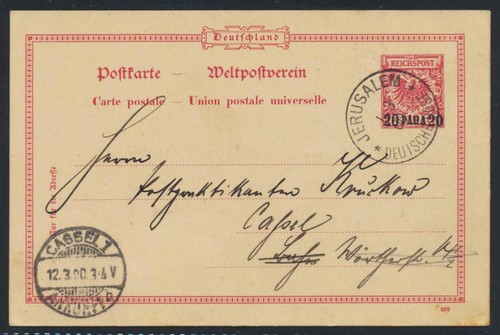 Deutschland
Postkarte — Weltpostverein
Carte postale — Union postale universelle
REICHSPOST
20 PARA 20
JERUSALEM
DEUTSCHE
Nur für die Adresse
Herrn
Postpraktikanten Kruckow
Cassel
Wörtherstr.
CASSEL 1
12.3.00.3-4 V